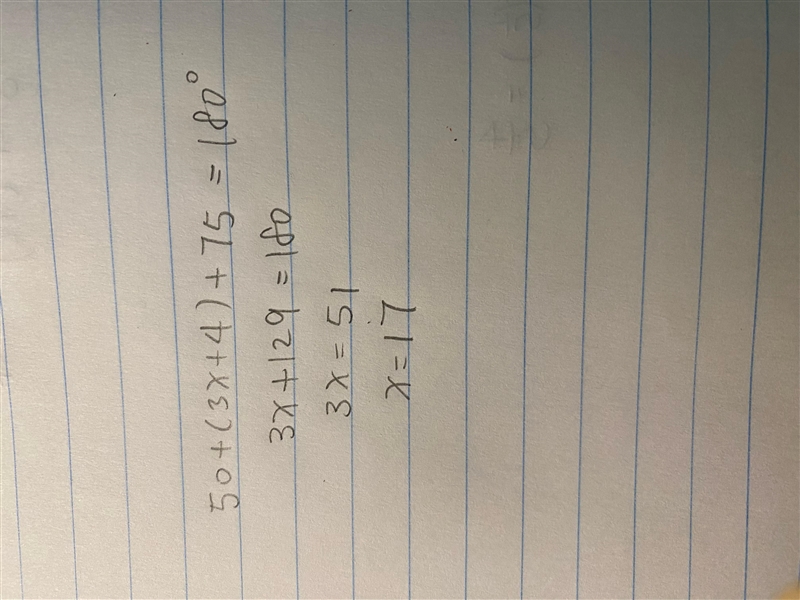 50+(3x+4)+75=180°
3x+129=180
3x=51
x=17